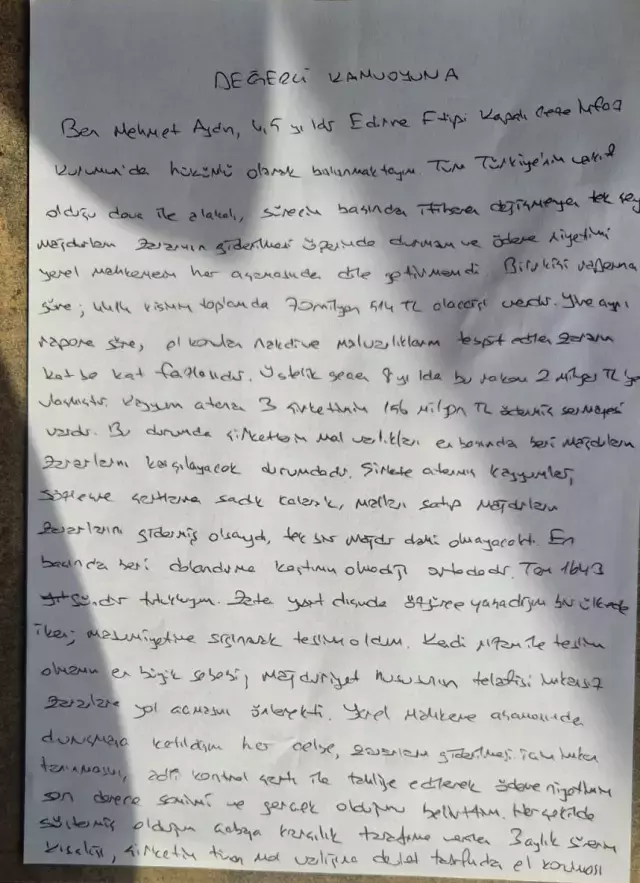 DEĞERLİ KAMUOYUNA
Ben Mehmet Aydın, 4,5 yıldır Edirne F tipi Kapalı Ceza İnfaz
kurumun'da hükümlü olarak bulunmaktayım. Tüm Türkiye'nin vakıf
olduğu dava ile alakalı, sürecin başından itibaren değişmeyen tek şey
mağdurların zararının giderilmesi üzerinde durmam ve ödeme niyetimi
yerel mahkemenin her aşamasında dile getirmemdi. Bilirkişi raporuna
göre; kısmın toplamda 70 milyon TL olacağı vardır. Yine aynı
rapora göre, el konulan nakdi ve malvarlıklarım tespit edilen zararın
kat be kat fazlasıdır. Üstelik geçen 8 yılda bu rakam 2 milyar TL'ye
ulaşmıştır. Kayyum atanan 3 şirketimin 156 milyon TL ödenmiş sermayesi
vardır. Bu durumda şirketlerin mal varlıkları en başından beri mağdurların
zararlarını karşılayacak durumdadır. Şirkete atanmış kayyumlar,
sözleşme şartlarına sadık kalarak, malları satıp mağdurların
zararlarını gidermiş olsaydı, tek bir mağdur dahi olmayacaktı. En
başından beri dolandırma kastımın olmadığı ortadadır. Tam 1643
gündür tutukluyum. Zaten yurt dışında özgürce yaşadığım bir ülkede
iken; masumiyetime sığınarak teslim oldum. Kendi rızam ile teslim
olmamın en büyük sebebi, mağduriyet hususunun telafisi imkansız
zararlara yol açmasını önlemekti. Yerel mahkeme aşamasında
duruşmaya katıldığım her celse, zararların giderilmesi için imkan
tanınmasını, adli kontrol şartı ile tahliye edilerek ödeme niyetimin
son derece samimi ve gerçek olduğunu belirttim. Her şekilde
göstermiş olduğum çabaya karşılık tarafıma verilen 3 aylık sürenin
kısalığı, şirketin tüm mal varlığına devlet tarafından el konması